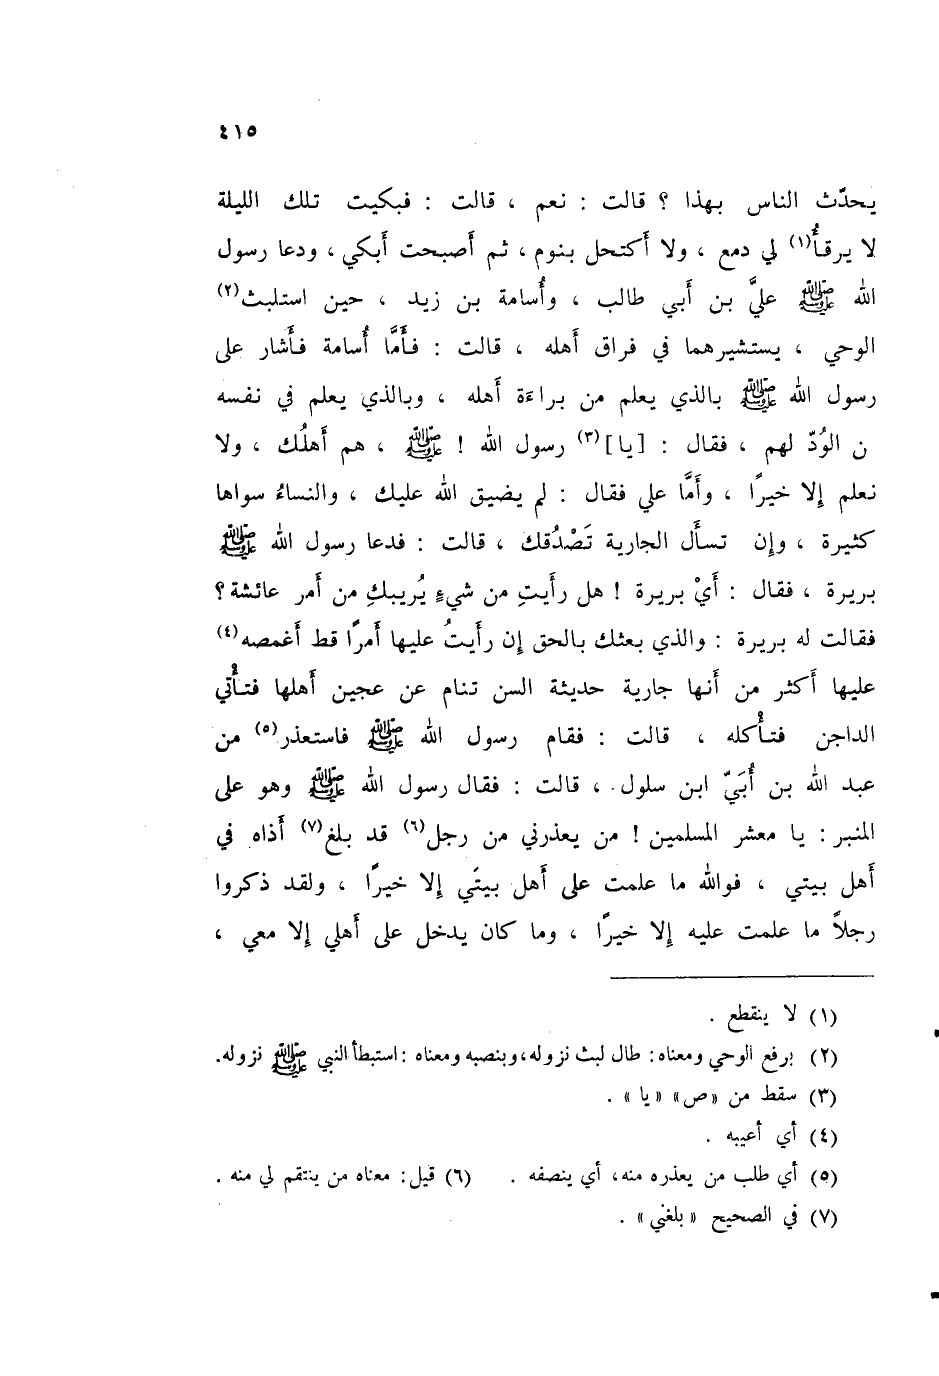 ٤١٥
يحدّث الناس بهذا ؟ قالت : نعم ، قالت : فبكيت تلك الليلة
لا يرقأُ(١) لي دمع ، ولا أَكتحل بنوم ، ثم أَصبحت أَبكي ، ودعا رسول
الله ﷺ عليَّ بن أَبي طالب ، وأُسامة بن زيد ، حين استلبث(٢)
الوحي ، يستشيرهما في فراق أهله ، قالت : فأَمَّا أُسامة فأَشار على
رسول الله ﷺ بالذي يعلم من براءة أَهله ، وبالذي يعلم في نفسه
ن الوُدّ لهم ، فقال : [يا](٣) رسول الله ! ﷺ ، هم أَهلُك ، ولا
نعلم إِلا خيرًا ، وأَمَّا علي فقال : لم يضيق الله عليك ، والنساءُ سواها
كثيرة ، وإِن تسأَل الجارية تَصْدُقك ، قالت : فدعا رسول الله ﷺ
بريرة ، فقال : أَيْ بريرة ! هل رأَيتِ من شيءٍ يُريبكِ من أَمر عائشة ؟
فقالت له بريرة : والذي بعثك بالحق إِن رأَيتُ عليها أَمرًا قط أَغمصه(٤)
عليها أَكثر من أَنها جارية حديثة السن تنام عن عجين أَهلها فتأْتي
الداجن فتأْكله ، قالت : فقام رسول الله ﷺ فاستعذر(٥) من
عبد الله بن أُبَيّ ابن سلول ، قالت : فقال رسول الله ﷺ وهو على
المنبر : يا معشر المسلمين ! من يعذرني من رجل(٦) قد بلغ(٧) أَذاه في
أَهل بيتي ، فوالله ما علمت على أَهل بيتَي إِلا خيرًا ، ولقد ذكروا
رجلاً ما علمت عليه إِلا خيرًا ، وما كان يدخل على أَهلي إِلا معي ،
(١) لا ينقطع .
(٢) برفع الوحي ومعناه : طال لبث نزوله، وبنصبه ومعناه : استبطأ النبي ﷺ نزوله.
(٣) سقط من «ص» «يا» .
(٤) أي أعيبه .
(٥) أي طلب من يعذره منه، أي ينصفه . (٦) قيل : معناه من ينتقم لي منه .
(٧) في الصحيح «بلغني» .